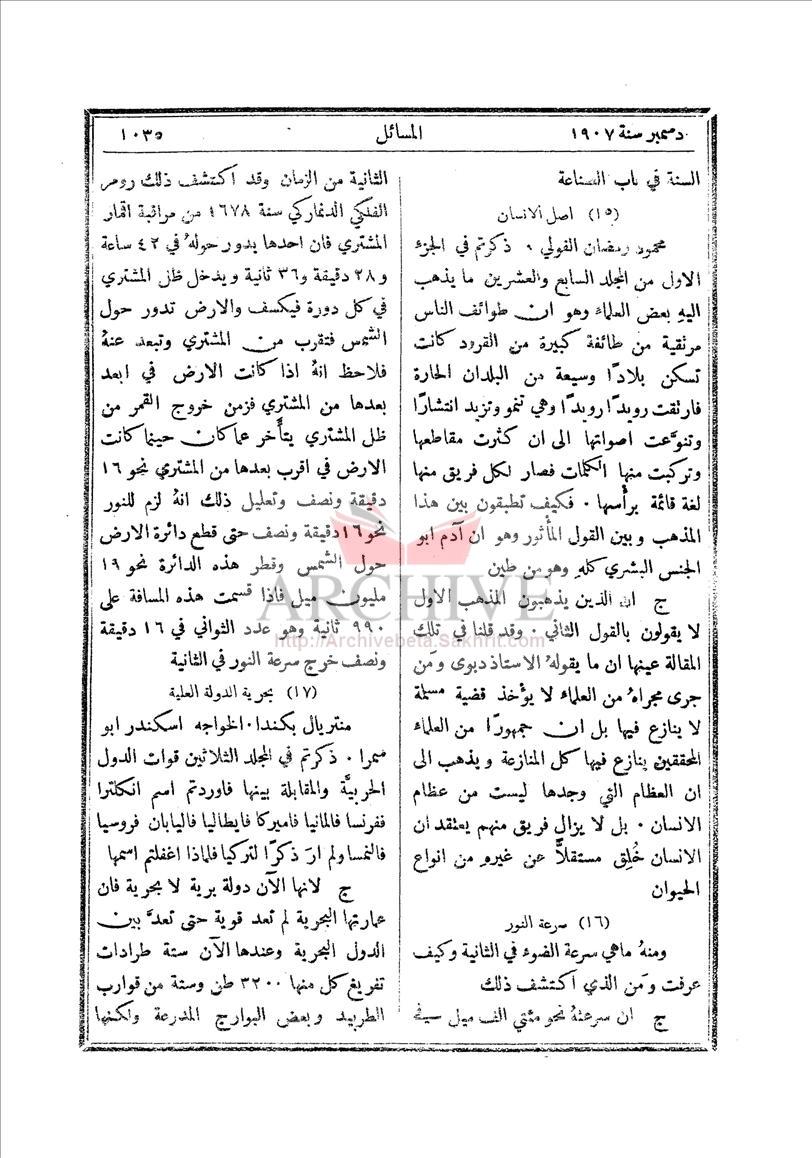 دسمبر سنة ١٩٠٧
المسائل
١٠٣٥
السنة في باب الصناعة
(١٥) اصل الانسان
محمود رمضان الفولي . ذكرتم في الجزء
الاول من المجلد السابع والعشرين ما يذهب
اليه بعض العلماء وهو ان طوائف الناس
مرتقية من طائفة كبيرة من القرود كانت
تسكن بلادًا وسيعة من البلدان الحارة
فارتقت رويدًا رويدًا وهي تنمو وتزيد انتشارًا
وتنوَّعت اصواتها الى ان كثرت مقاطعها
وتركبت منها الكلمات فصار لكل فريق منها
لغة قائمة برأسها . فكيف تطبقون بين هذا
المذهب وبين القول المأثور وهو ان آدم ابو
الجنس البشري كله وهو من طين
ج ان الذين يذهبون المذهب الاول
لا يقولون بالقول الثاني . وقد قلنا في تلك
المقالة عينها ان ما يقولهُ الاستاذ دبوى ومَن
جرى مجراهُ من العلماء لا يؤخذ قضية مسلمة
لا ينازع فيها بل ان جمهورًا من العلماء
المحققين ينازع فيها كل المنازعة ويذهب الى
ان العظام التي وجدها ليست من عظام
الانسان . بل لا يزال فريق منهم يعتقد ان
الانسان خُلِق مستقلاًّ عن غيرهِ من انواع
الحيوان
(١٦) سرعة النور
ومنهُ ماهي سرعة الضوء في الثانية وكيف
عرفت ومَن الذي اكتشف ذلك
ج ان سرعتهُ نحو مئتي الف ميل في
الثانية من الزمان وقد اكتشف ذلك رومر
الفلكي الدنماركي سنة ١٦٧٨ من مراقبة اقمار
المشتري فان احدها يدور حولهُ في ٤٢ ساعة
و٢٨ دقيقة و٣٦ ثانية ويدخل ظل المشتري
في كل دورة فيكسف والارض تدور حول
الشمس فتقرب من المشتري وتبعد عنهُ
فلاحظ انهُ اذا كانت الارض في ابعد
بعدها من المشتري فزمن خروج القمر من
ظل المشتري يتأَخر عما كان حينما كانت
الارض في اقرب بعدها من المشتري نحو ١٦
دقيقة ونصف وتعليل ذلك انهُ لزم للنور
نحو ١٦ دقيقة ونصف حتى قطع دائرة الارض
حول الشمس وقطر هذه الدائرة نحو ١٩
مليون ميل فاذا قسمت هذه المسافة على
٩٩٠ ثانية وهو عدد الثواني في ١٦ دقيقة
ونصف خرج سرعة النور في الثانية
(١٧) بحرية الدولة العلية
منتريال بكندا . الخواجه اسكندر ابو
سمرا . ذكرتم في المجلد الثلاثين قوات الدول
الحربيَّة والمقابلة بينها فاوردتم اسم انكلترا
ففرنسا فالمانيا فاميركا فايطاليا فاليابان فروسيا
فالنمسا ولم ارَ ذكرًا لتركيا فلماذا اغفلتم اسمها
ج لانها الآن دولة برية لا بحرية فان
عمارتها البحرية لم تعد قوية حتى تعدَّ بين
الدول البحرية وعندها الآن ستة طرادات
تفريغ كل منها ٣٢٠٠ طن وستة من قوارب
الطربيد وبعض البوارج المدرعة ولكنها
ARCHIVE
http://Archivebeta.Sakhrit.com